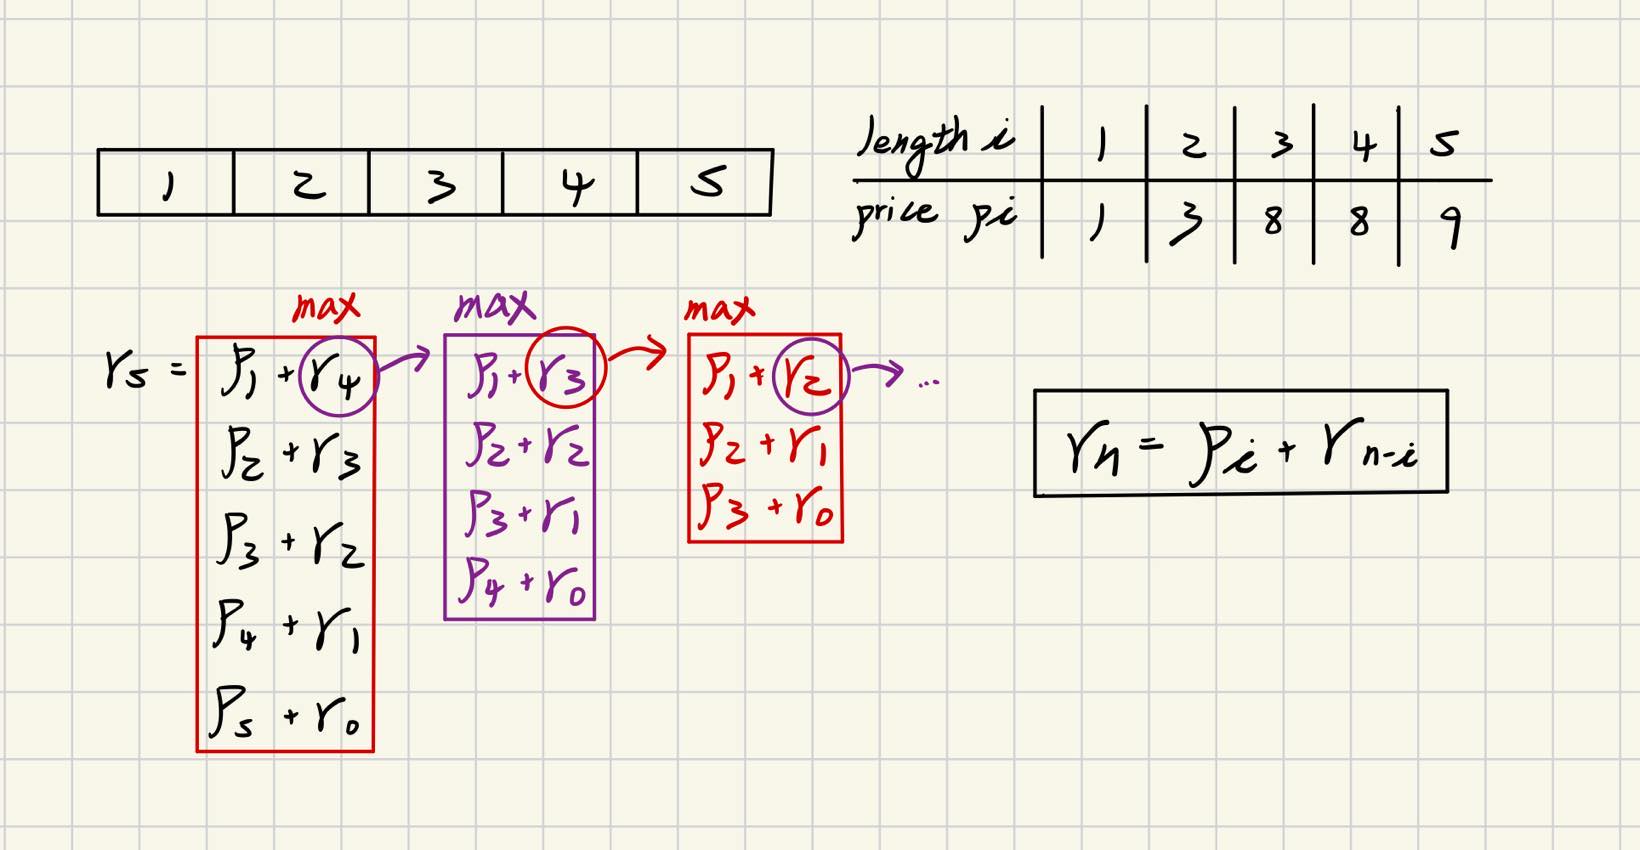 1 2 3 4 5
length i 1 2 3 4 5
price pi 1 3 8 8 9
max max max
r5 = p1 + r4 p1 + r3 p1 + r2 ...
p2 + r3 p2 + r2 p2 + r1
p3 + r2 p3 + r1 p3 + r0
p4 + r1 p4 + r0
p5 + r0
rn = pi + rn-i